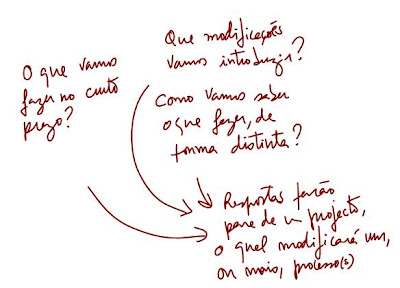 O que vamos
fazer no curto
prazo?
Que modificações
vamos introduzir?
Como vamos saber
o que fazer, de
forma distinta?
Respostas farão
parte de um projecto,
o qual modificará um,
ou mais, processo(s)